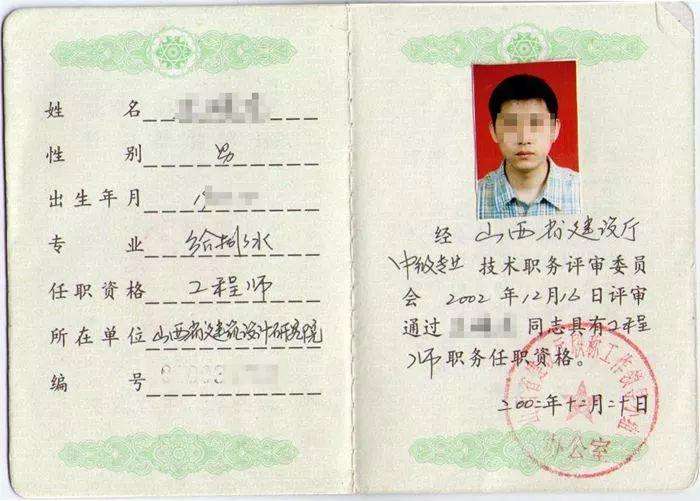 姓名
性别 男
出生年月 19
专业 给排水
任职资格 工程师
所在单位 山西省建筑设计研究院
编号
经 山西省建设厅
中级专业 技术职务评审委员
会 2002 年 12 月 16 日评审
通过 同志具有工程
师职务任职资格。
二00二年十二月二十日
办公室